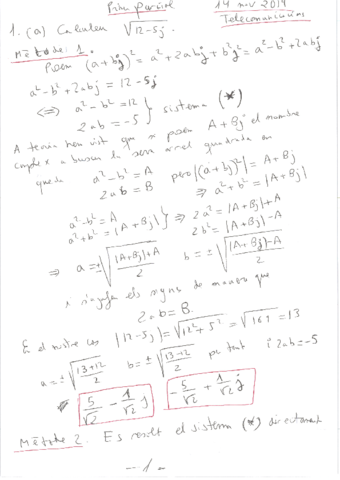 Primer parcial 14 nov 2014
Telecomunicacions
1. (a) Calculeu √(12-5j)
Mètode 1.
Posem (a+bj)² = a² + 2abj + b²j² = a² - b² + 2abj
a² - b² + 2abj = 12 - 5j
⟺ a² - b² = 12
2ab = -5 } sistema (*)
A teoria hem vist que si posem A+Bj el nombre
complex a buscar la seva arrel quadrada ens
queda a² - b² = A
2ab = B però |(a+bj)²| = |A+Bj|
⇒ a² + b² = |A+Bj|
a² - b² = A
a² + b² = |A+Bj| } ⇒ 2a² = |A+Bj| + A
2b² = |A+Bj| - A
⇒ a = ±√((|A+Bj|+A)/2) b = ±√((|A+Bj|-A)/2)
els signes de manera que
2ab = B.
En el nostre cas |12-5j| = √(12²+5²) = √169 = 13
a = ±√((13+12)/2) b = ±√((13-12)/2) per tant i 2ab = -5
5/√2 - 1/√2 j -5/√2 + 1/√2 j
Mètode 2. Es resolt el sistema (*) directament
- 1 -